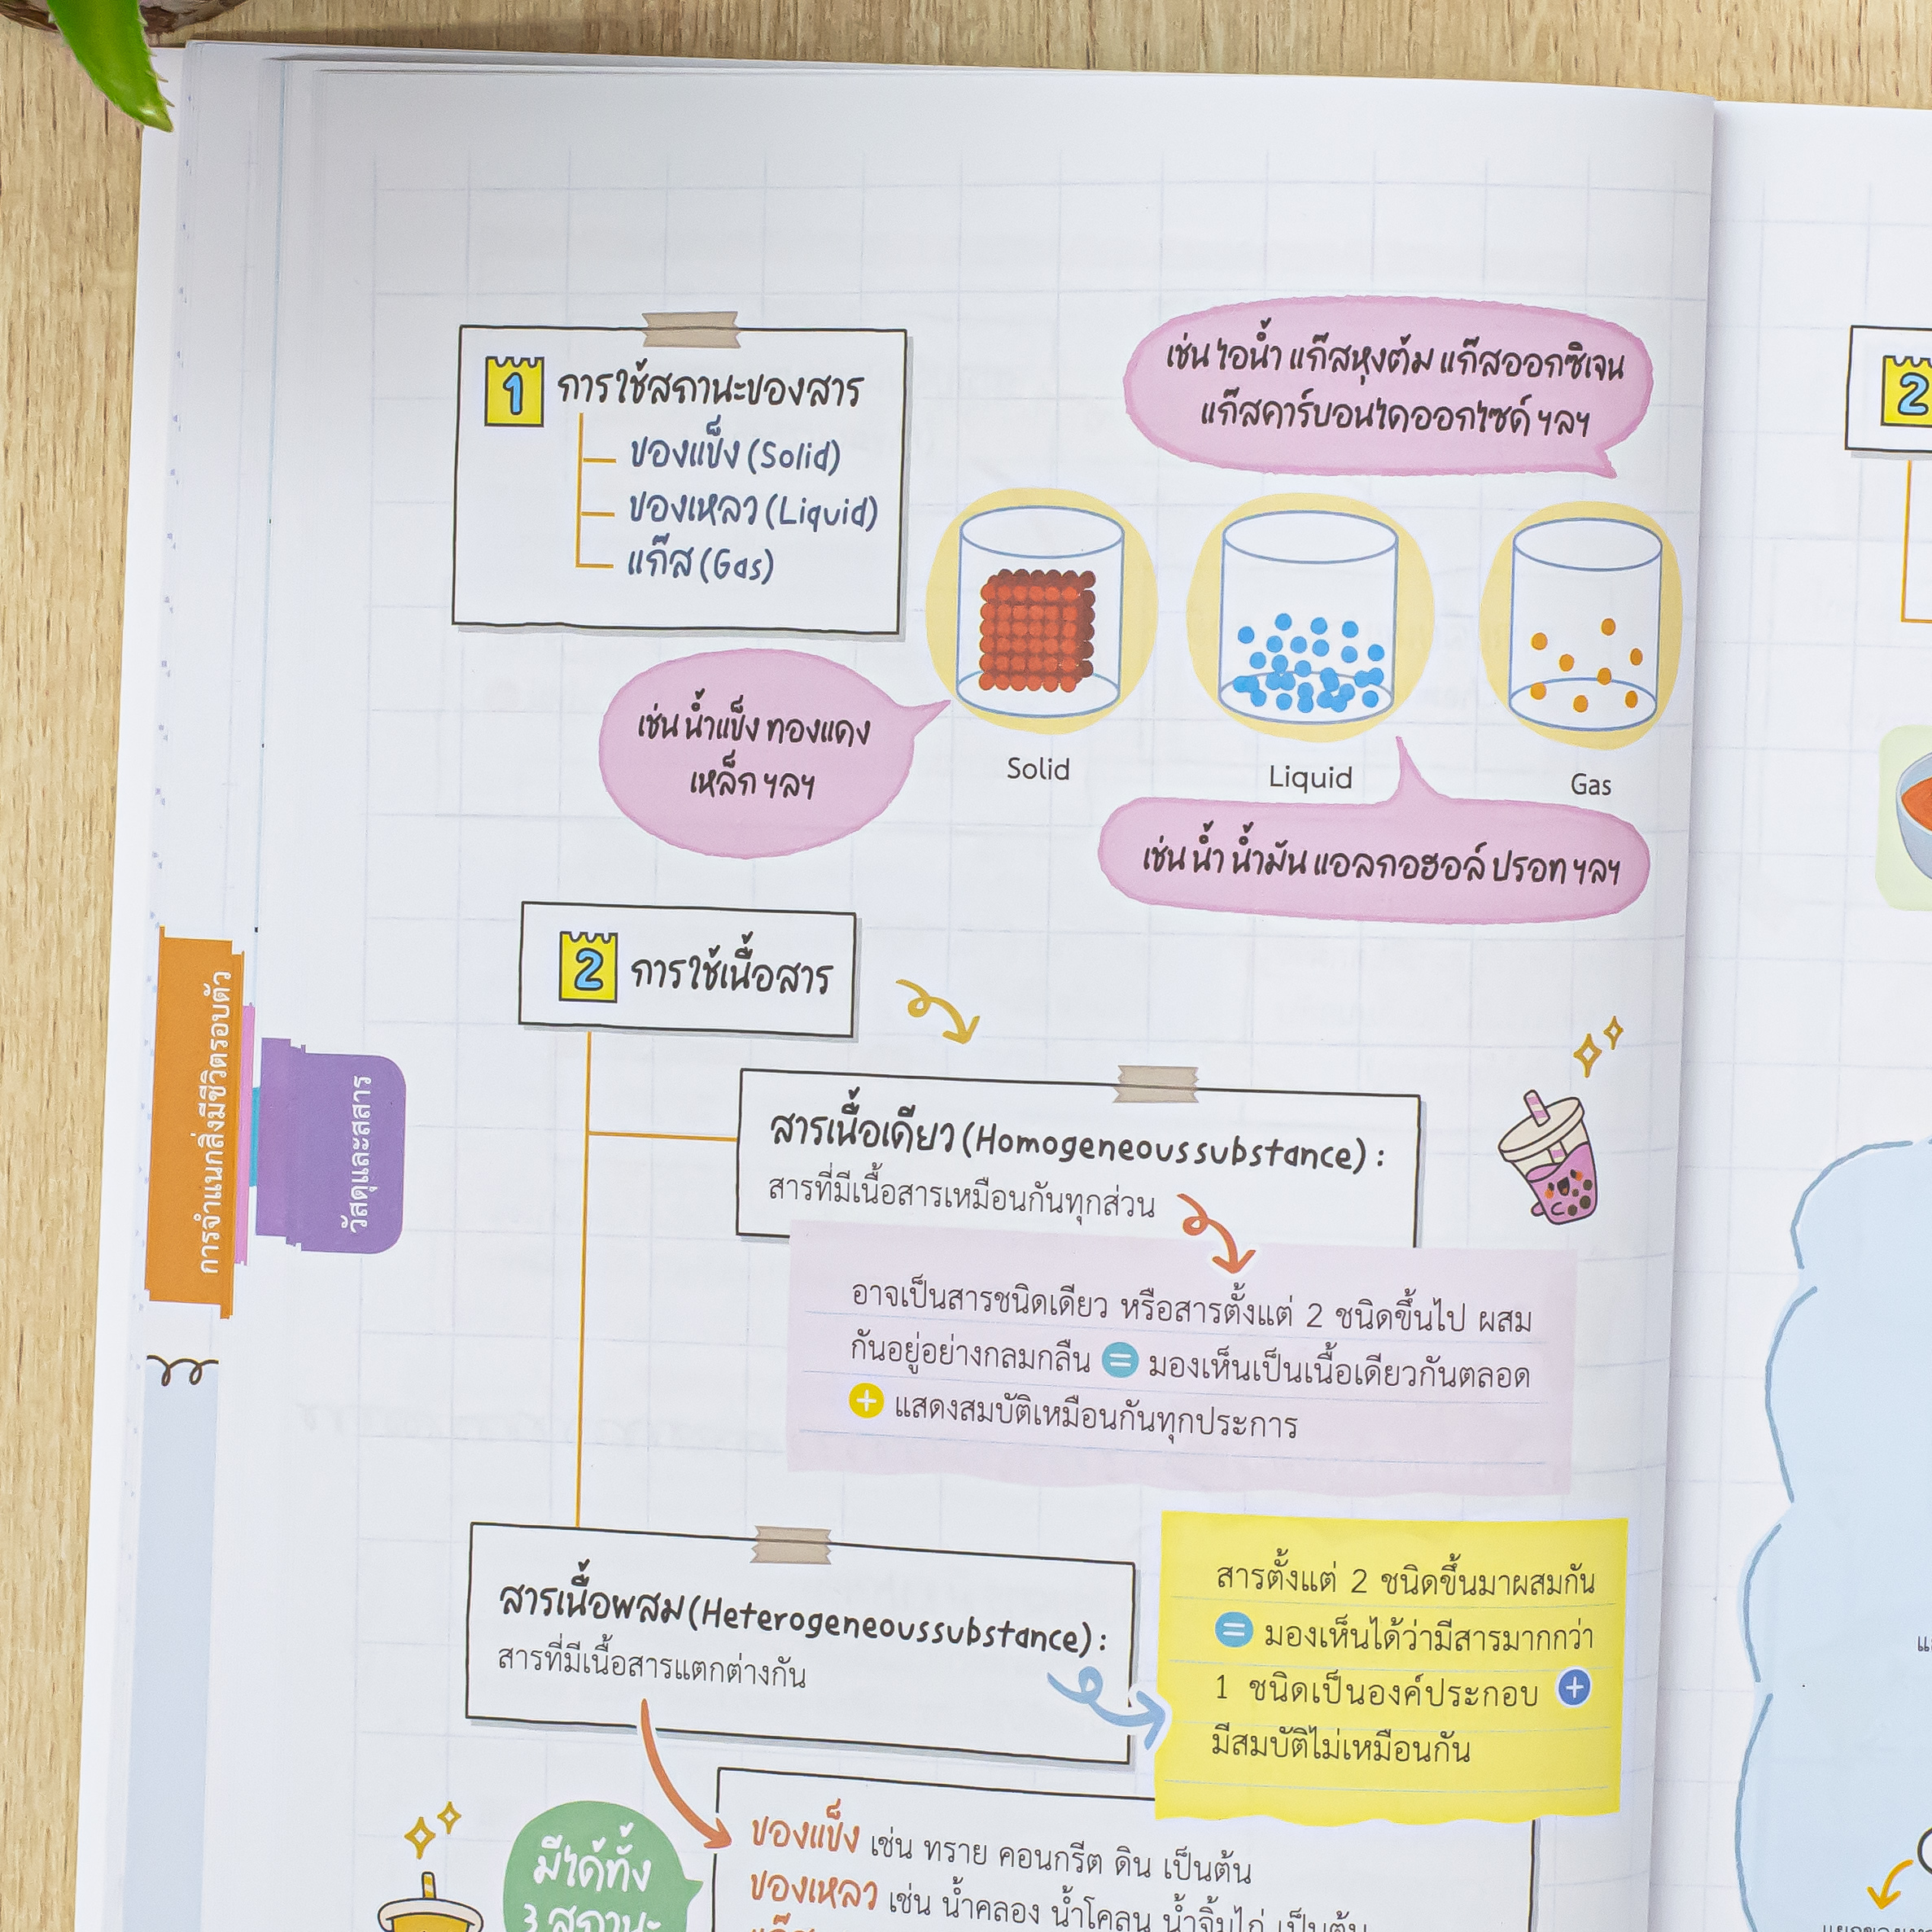 1 การใช้สถานะของสาร
ของแข็ง (Solid)
ของเหลว (Liquid)
แก๊ส (Gas)
เช่น ไอน้ำ แก๊สหุงต้ม แก๊สออกซิเจน
แก๊สคาร์บอนไดออกไซด์ ฯลฯ
เช่น น้ำแข็ง ทองแดง
เหล็ก ฯลฯ
Solid
Liquid
Gas
เช่น น้ำ น้ำมัน แอลกอฮอล์ ปรอท ฯลฯ
2 การใช้เนื้อสาร
สารเนื้อเดียว (Homogeneous substance) :
สารที่มีเนื้อสารเหมือนกันทุกส่วน
อาจเป็นสารชนิดเดียว หรือสารตั้งแต่ 2 ชนิดขึ้นไป ผสม
กันอยู่อย่างกลมกลืน = มองเห็นเป็นเนื้อเดียวกันตลอด
+ แสดงสมบัติเหมือนกันทุกประการ
สารเนื้อผสม (Heterogeneous substance) :
สารที่มีเนื้อสารแตกต่างกัน
สารตั้งแต่ 2 ชนิดขึ้นมาผสมกัน
= มองเห็นได้ว่ามีสารมากกว่า
1 ชนิดเป็นองค์ประกอบ +
มีสมบัติไม่เหมือนกัน
มีได้ทั้ง
3 สถานะ
ของแข็ง เช่น ทราย คอนกรีต ดิน เป็นต้น
ของเหลว เช่น น้ำคลอง น้ำโคลน น้ำจิ้มไก่ เป็นต้น
การจำแนกสิ่งมีชีวิตรอบตัว
วัสดุและสสาร
2